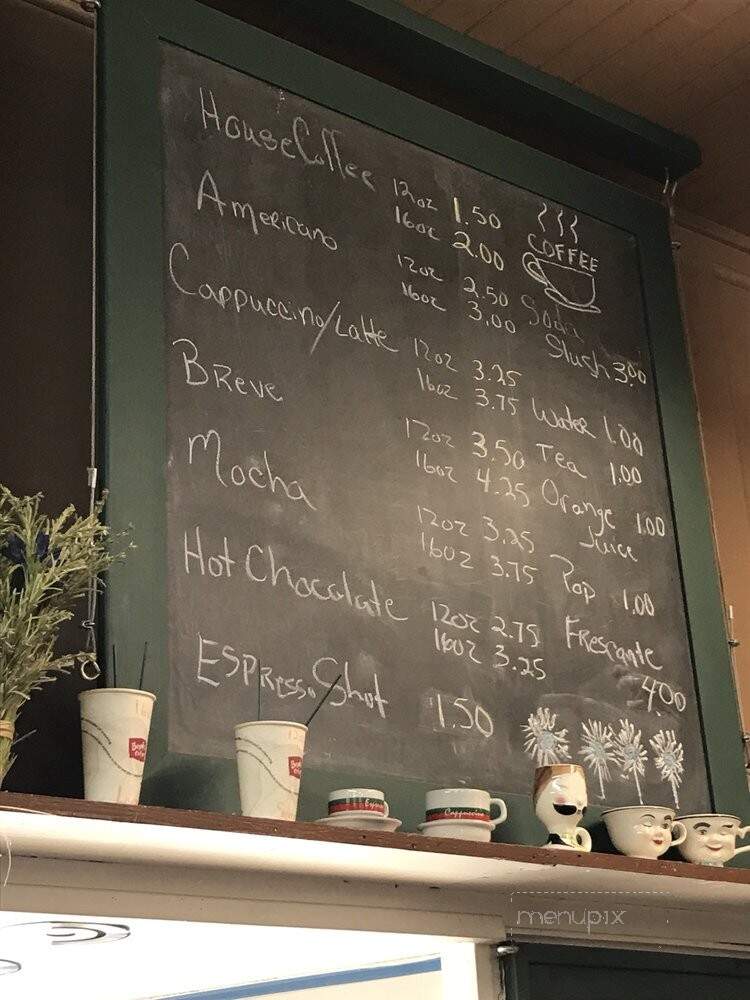 House Coffee 12oz 1.50
16oz 2.00
COFFEE
Americano 12oz 2.50
16oz 3.00
Soda
Slush 3.00
Cappuccino/Latte 12oz 3.25
16oz 3.75
Water 1.00
Breve 12oz 3.50
16oz 4.25
Tea 1.00
Orange 1.00
Juice
Mocha 12oz 3.25
16oz 3.75
Pop 1.00
Hot Chocolate 12oz 2.75
16oz 3.25
Frescante
4.00
Espresso Shot 1.50
Cappuccino
menupix